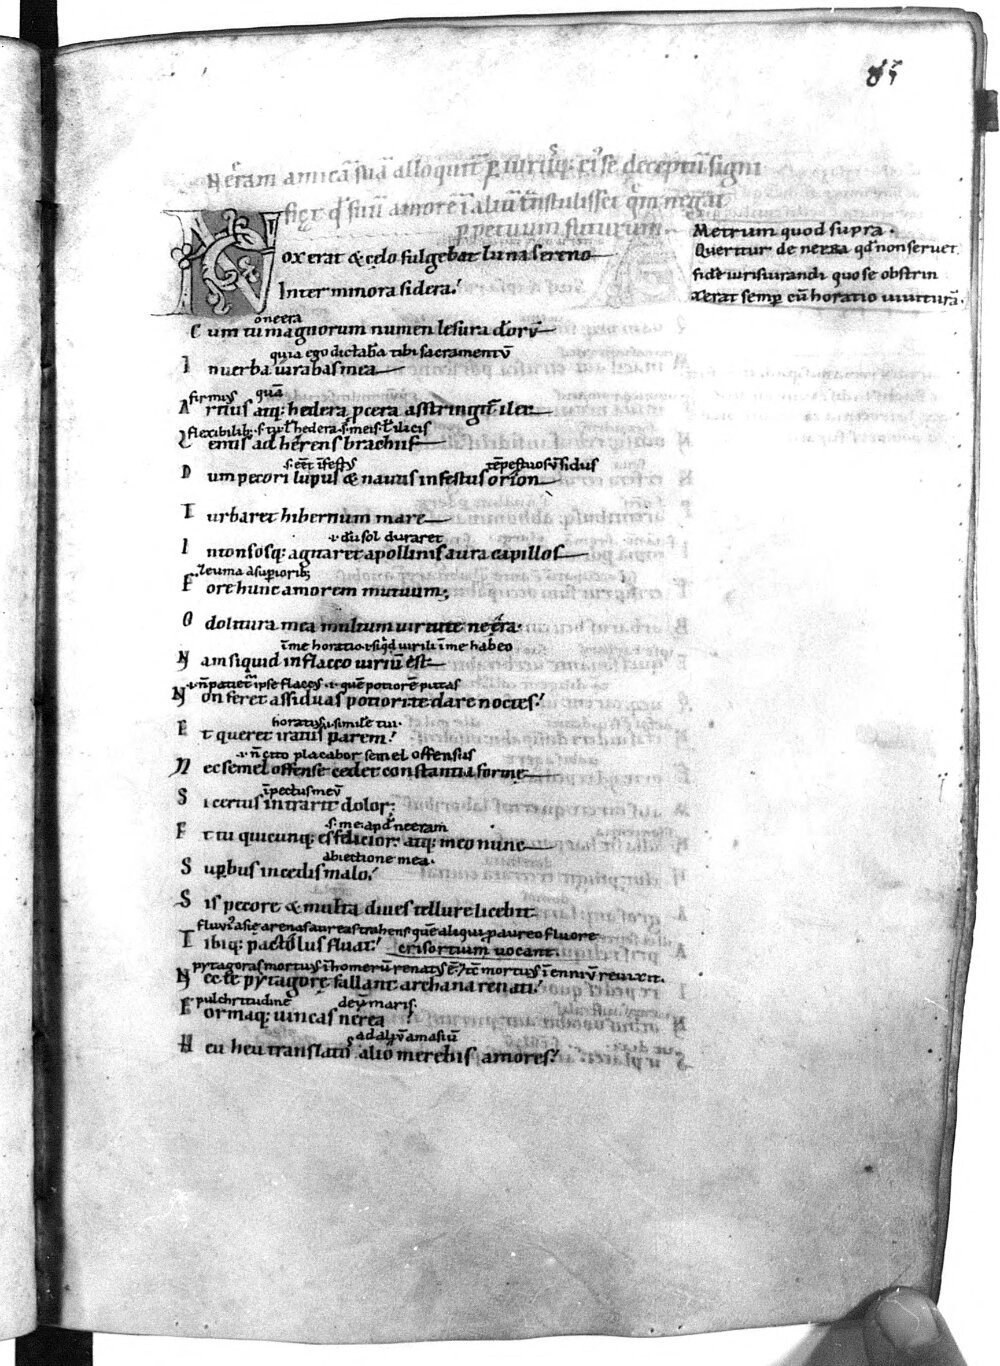 85
Nęram amicā suā alloquit̄ p̱ iuriūq; ei' se deceptū signi
ficat qd suū amorē ī aliū trāstulisset quē negat
perpetuum futurum.
Metrum quod supra.
Queritur de neęra qd nonseruet
fidē iurisiurandi quo se obstrin
xerat semp̱ cū horatio uicturā.
Nox erat & cęlo fulgebat luna sereno
Inter minora sidera.
o neera
Cum tu magnorum numen lesura deorū
quia ego dictabā tibi sacramentū
In uerba iurabas mea
firmius quā
Artius atq; hedera p̱cera astringit̄ ilex
Lentis adhęrens brachiis
s. eēt īfestus tēpestuosū sidus
Dum pecori lupus & nautis infestus orion
Turbaret hibernum mare
.i. dū sol duraret
Intonsosq; agitaret apollinis aura capillos
Fore hunc amorem mutuum;
O dolitura mea multum uirtute neęra.
Nam siquid in flacco uirī est
Non feret assiduas potiori te dare noctes!
horatius .i. similē tui.
Et queret iratus parem!
.i. n̄ cito placabor semel offensus
Nec semel offense cedet constantia formę
ī pectus meū
Si certus intrarit dolor;
s. me apd neeram
Et tu quicunq; es felicior: atq; meo nunc
abiectione mea.
Sup̱bus incedis malo!
Sis pecore & multa diues tellure licebit
Tibiq; pactolus fluat!
crisorrium uocant.
pytagoras mortuus ī homerū renatus ē. Itē mortuus ī enniū reuixit.
Nec te pytagorę fallant archana renati!
pulchritudinē deū maris.
Formaq; uincas nerea
ad aliū amasiū
Heu heu translatos alio merebis amores!